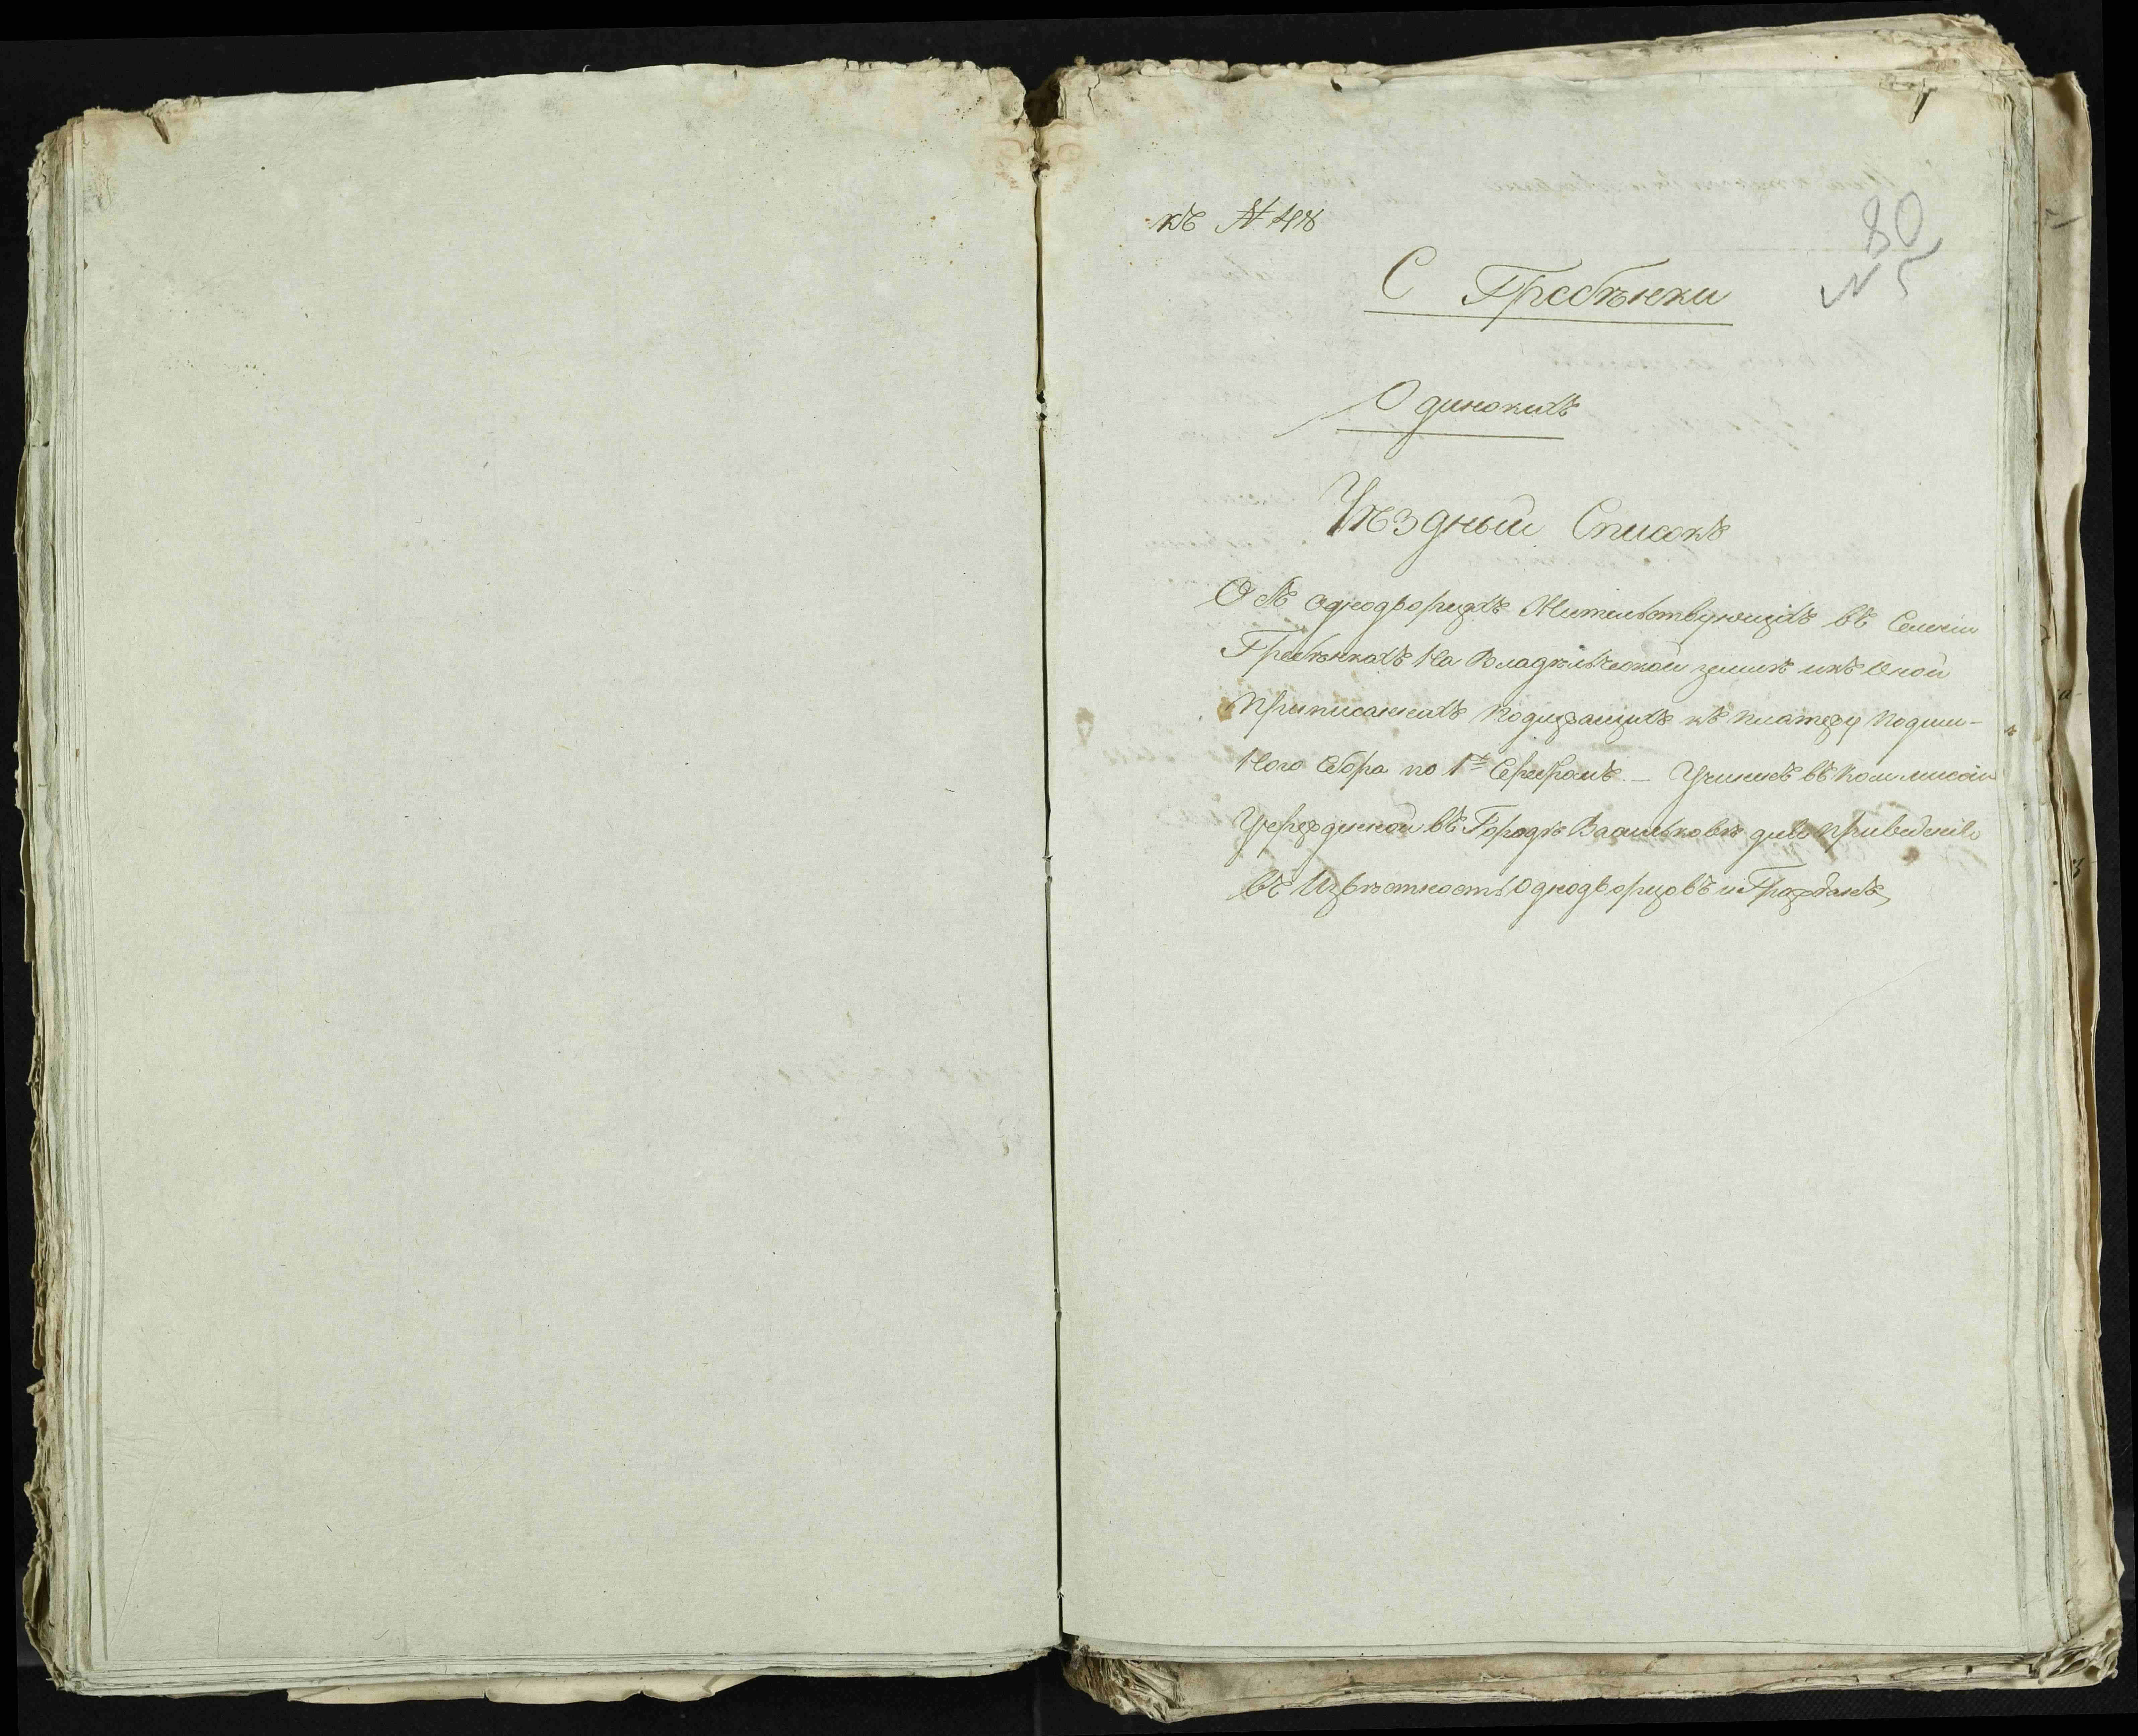 къ № 498
80
№ 5
С Гребѣнки
Одинокихъ
Уѣздный Списокъ
О однодворцахъ Жительствующихъ въ Селеніи
Гребѣнкахъ На Владѣльческой землѣ и къ Оной
Приписанныхъ Подлежащихъ къ платежу Подым-
Ного Сбора по Учиненъ въ Коммисіи
Учрежденной въ Городѣ Васильковѣ для Приведенія
въ Извѣстность Однодворцовъ и Гражданъ